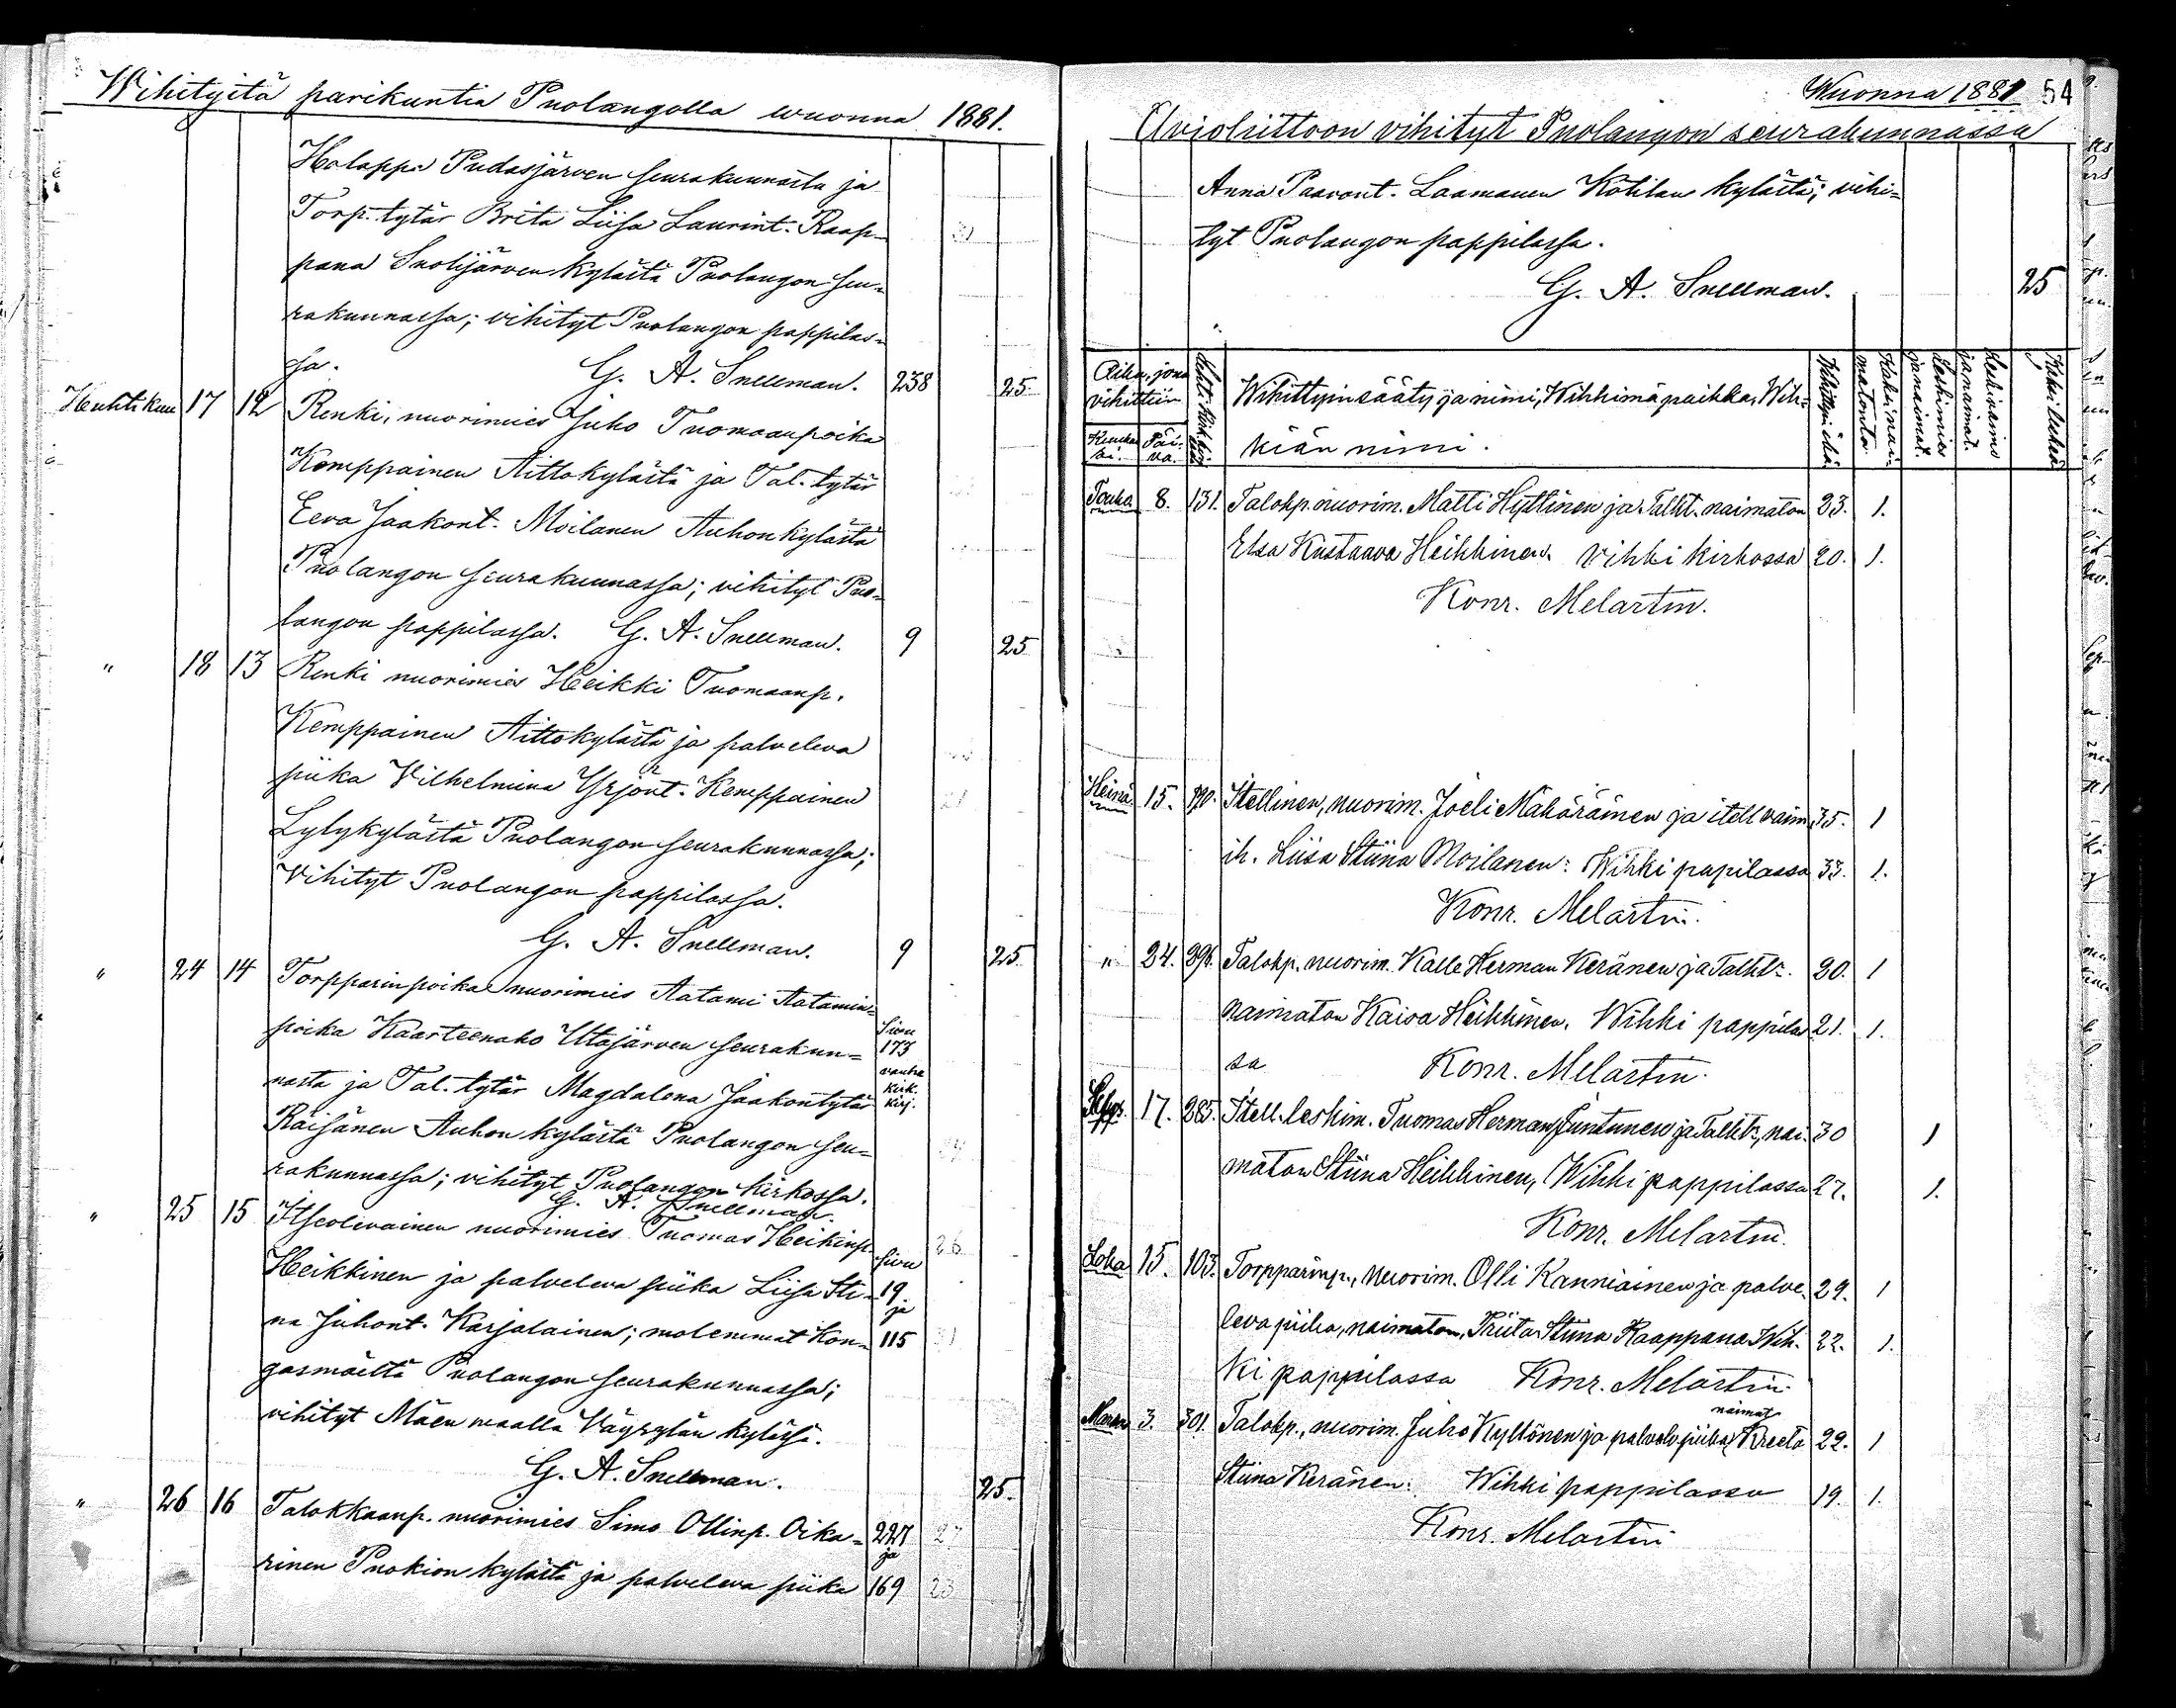 Wihityitä parikuntia Puolangolla wuonna 1881.
Holappa Pudasjärven seurakunnasta ja
Torp. tytär Brita Liisa Laurint. Raap-
pana Suolijärven kylästä Puolangon seu-
rakunnassa; vihityt Puolangon pappilas-
sa. G. A. Snellman. 238 25
Huhtikuu 17 12 Renki, nuorimies Juho Tuomaanpoika
Kemppainen Aittokylästä ja Tal. tytär
Eeva Jaakont. Moilanen Auhonkylästä
Puolangon seurakunnassa; vihityt Puo-
langon pappilassa. G. A. Snellman. 9 25
" 18 13 Renki nuorimies Heikki Tuomaanp.
Kemppainen Aittokylästä ja palveleva
piika Vilhelmina Yrjönt. Kemppainen 21
Lylykylästä Puolangon seurakunnassa;
Vihityt Puolangon pappilassa.
G. A. Snellman. 9 25
" 24 14 Torpparinpoika nuorimies Aatami Aatamin-
poika Kaarteenaho Utajärven seurakun- Sivu 173
nasta ja Tal. tytär Magdalena Jaakontytär vanha kirk. kirj.
Räisänen Auhon kylästä Puolangon seu-
rakunnassa; vihityt Puolangon kirkossa.
G. A. Snellman.
" 25 15 Itseolevainen nuorimies Tuomas Heikinp. sivu 26
Heikkinen ja palveleva piika Liisa Sti- 19 ja
na Juhont. Karjalainen; molemmat Kon- 115 31
gasmäeltä Puolangon seurakunnassa;
vihityt Mäen maalla Väyrylän kylässä.
G. A. Snellman. 25.
" 26 16 Talokkaanp. nuorimies Simo Ollinp. Oika- 227 ja 27
rinen Puokion kylästä ja palveleva piika 169 23
Wuonna 1881 54
Avioliittoon vihityt Puolangon seurakunnassa
Anna Paavont. Laamanen Kotilan kylästä; vihi-
tyt Puolangon pappilassa.
G. A. Snellman. 25
Aika, jona vihittiin
Kuukausi. Päivä.
Wihittyin sääty ja nimi, Wihkimäpaikka, Wih-
kiän nimi.
Vihittyin ikä.
Kaksi naimatonta.
Leskimies ja naimat.
Leskivaimo ja naimat.
Kaksi leskeä
Touko 8. 131. Talokp. nuorim. Matti Hyttinen ja Talht. naimaton 23. 1.
Elsa Kustaava Heikkinen. Vihki kirkossa 20. 1.
Konr. Melartin.
Heinä 15. Itellinen, nuorim. Joeli Mähäräinen ja itell vaim. 35. 1
ih. Liisa Stiina Moilanen: Wihki papilassa 33. 1.
Konr. Melartin.
" 24. 296. Talokp. nuorim. Kalle Herman Keränen ja Talht. 20. 1
naimaton Kaisa Heikkinen. Wihki pappilas 21. 1.
sa Konr. Melartin.
17. 285. Itell. leskim. Tuomas Herman Juntunen ja Talht., nai- 30 1
maton Stiina Heikkinen, Wihki pappilassa 27. 1.
Konr. Melartin.
Loka 15. 103. Torpparinp., nuorim. Olli Kanniainen ja palve- 29. 1
leva piika, naimaton, Priita Stiina Raappana Wih- 22. 1.
ki pappilassa Konr. Melartin.
Marras 3. 301. Talokp., nuorim. Juho Kyllönen ja palvelv. piika, naimat. Kreeta 22. 1
Stiina Keränen: Wihki pappilassa 19. 1.
Konr. Melartin